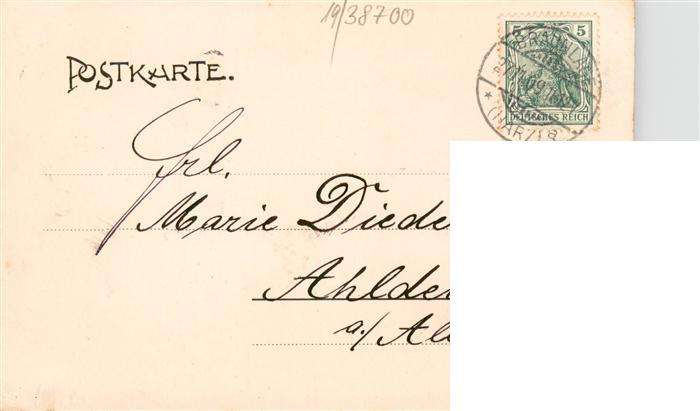 19/38700
POSTKARTE.
5 5
DEUTSCHES REICH
(HARZ)
Frl.
Marie Diede
Ahlde
a./Al